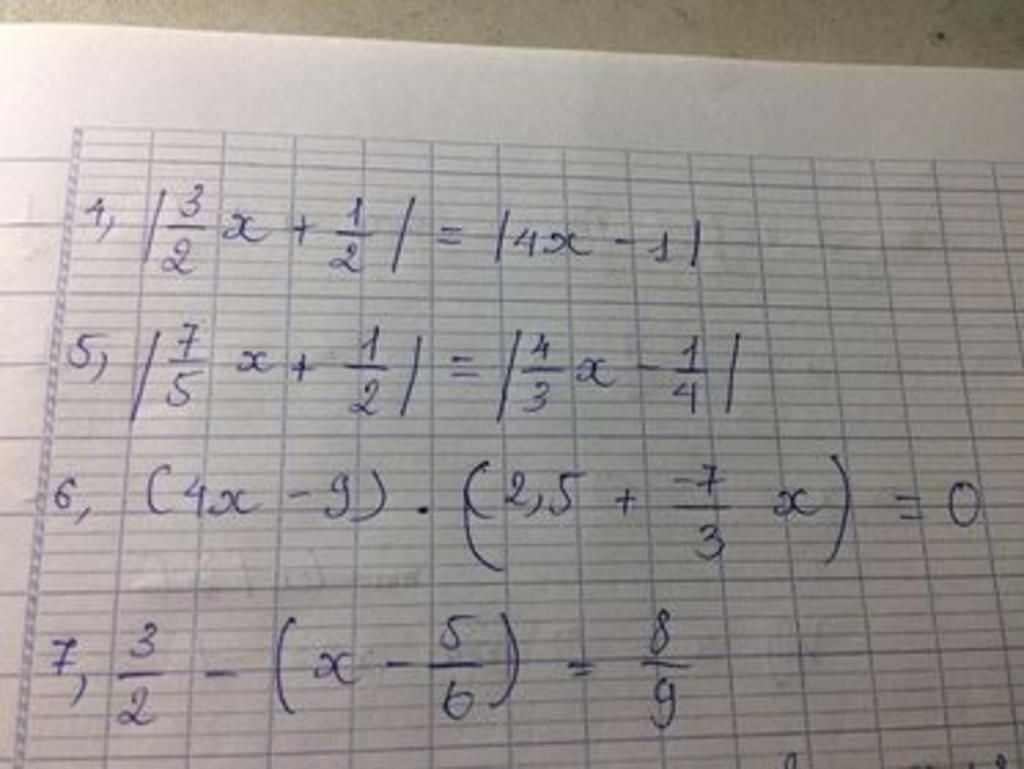 4, |3/2 x + 1/2| = |4x - 1|
5, |7/5 x + 1/2| = |4/3 x - 1/4|
6, (4x - 9) . (2,5 + -7/3 x) = 0
7, 3/2 - (x - 5/6) = 8/9